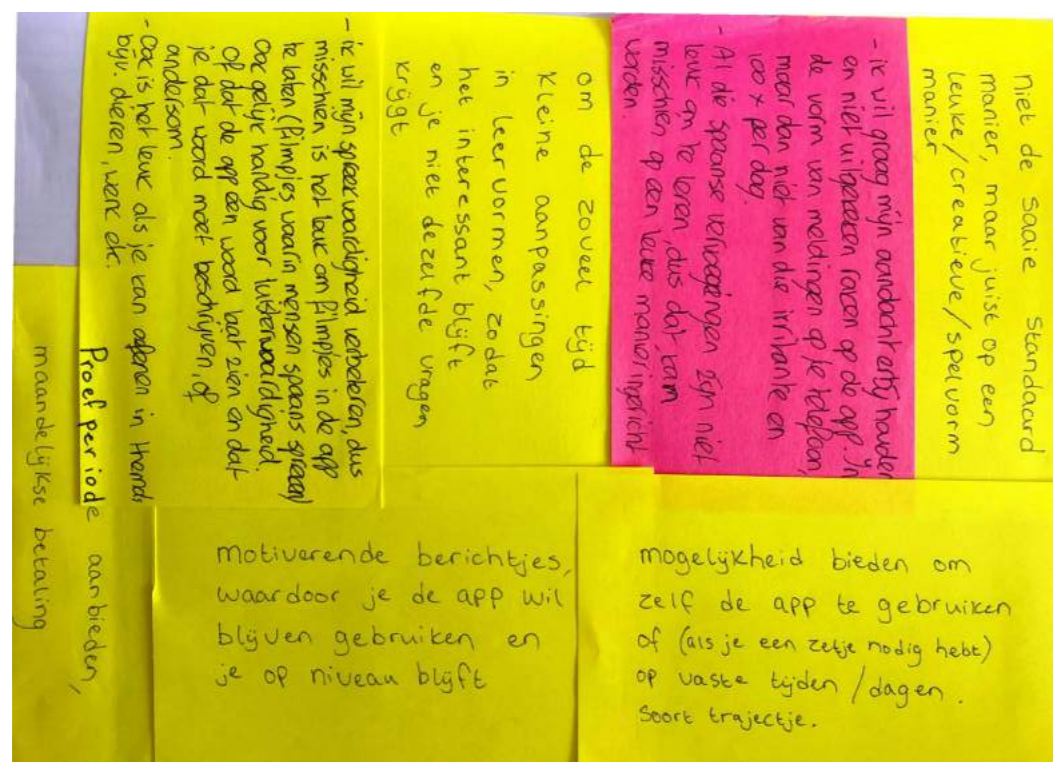 niet de saaie standaard
manier, maar juist op een
leuke/creatieve/spelvorm
manier
- ik wil graag mijn aandacht erbij houden
en niet uitgekeken raken op de app. In
de vorm van meldingen op je telefoon,
maar dan niet van die irritante en
100 x per dag.
- Al die spaanse vervoegingen zijn niet
leuk om te leren, dus dat kan
misschien op een leuke manier ingericht
worden.
om de zoveel tijd
kleine aanpassingen
in leervormen, zodat
het interessant blijft
en je niet dezelfde vragen
krijgt
- ik wil mijn spreekvaardigheid verbeteren, dus
misschien is het leuk om filmpjes in de app
te laten (filmpjes waarin mensen spaans spreken)
Ook gelijk handig voor luistervaardigheid,
of dat de app een woord laat zien en dat
je dat woord moet beschrijven, of
andersom.
- Ook is het leuk als je kan oefenen in thema's
bijv. dieren, werk etc.
Proefperiode aanbieden,
maandelijkse betaling
motiverende berichtjes,
waardoor je de app wil
blijven gebruiken en
je op niveau blijft
mogelijkheid bieden om
zelf de app te gebruiken
of (als je een zetje nodig hebt)
op vaste tijden/dagen.
Soort trajectje.